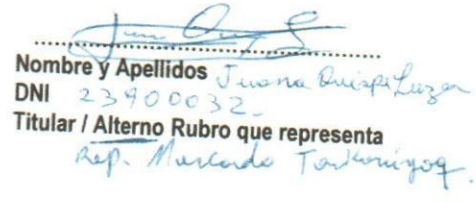 Nombre y Apellidos Juana Quispe Luza
DNI 23900032
Titular / Alterno Rubro que representa
Rep. Mercado